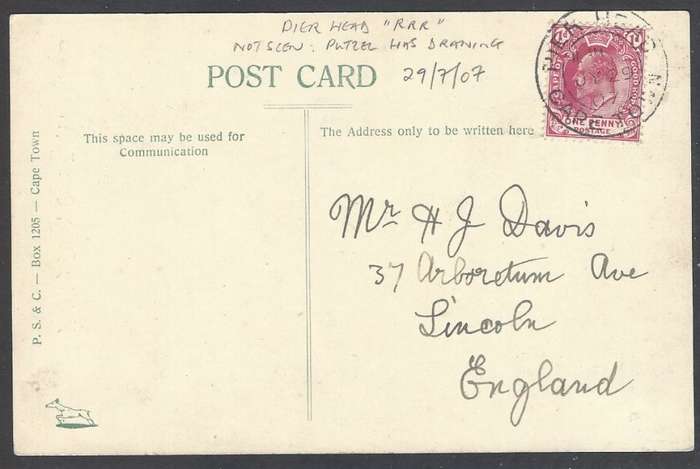 PIER HEAD "RRR"
NOT SEEN: PUTZEL HAS DRAWING
POST CARD
29/7/07
This space may be used for
Communication
The Address only to be written here
ONE PENNY
POSTAGE
PIER HEAD
CAPE TOWN
Mr H J Davis
37 Arboretum Ave
Lincoln
England
P. S. & C. — Box 1205 — Cape Town